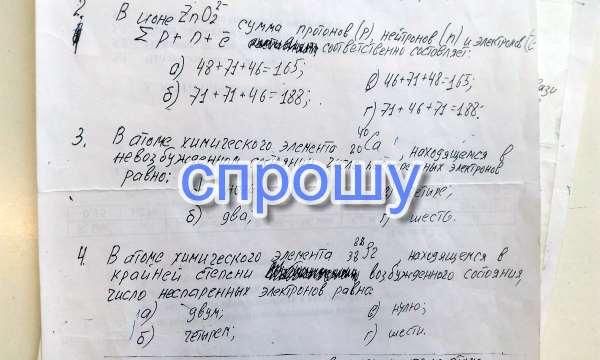 2. В ионе ZnO₂²⁻ сумма протонов (p), нейтронов (n) и электронов
Σ p + n + ē соответственно составляет:
а) 48+71+46=165; в) 46+71+48=165;
б) 71+71+46=188; г) 71+46+71=188.
3. В атоме химического элемента ⁴⁰₂₀Ca, находящемся в
невозбужденном электронов
равно:
спрошу
б) два; г) шесть.
4. В атоме химического элемента ⁸⁸₃₈Sr, находящемся в
крайней степени возбужденного состояния,
число неспаренных электронов равна
а) двум; в) нулю;
б) четырем; г) шести.